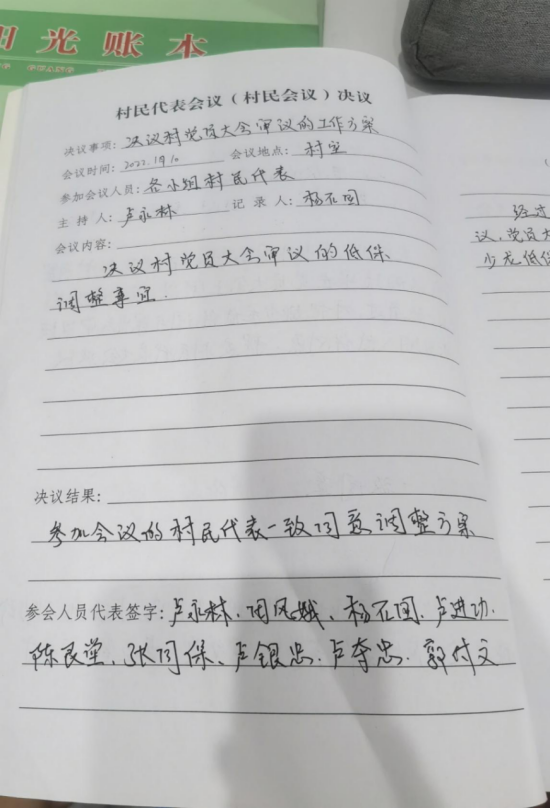 阳光账本
村民代表会议（村民会议）决议
决议事项：决议村党员大会审议的工作方案
会议时间：2022.1月10 会议地点：村室
参加会议人员：各小组村民代表
主 持 人：卢永林 记 录 人：杨石国
会议内容：
决议村党员大会审议的低保
调整事宜.
决议结果：
参加会议的村民代表一致同意调整方案
参会人员代表签字：卢永林、周凤娥、杨石国、卢进功、
陈良 、张同保、卢银忠、卢 忠、郭付文
经过
议,党员大
少龙低保